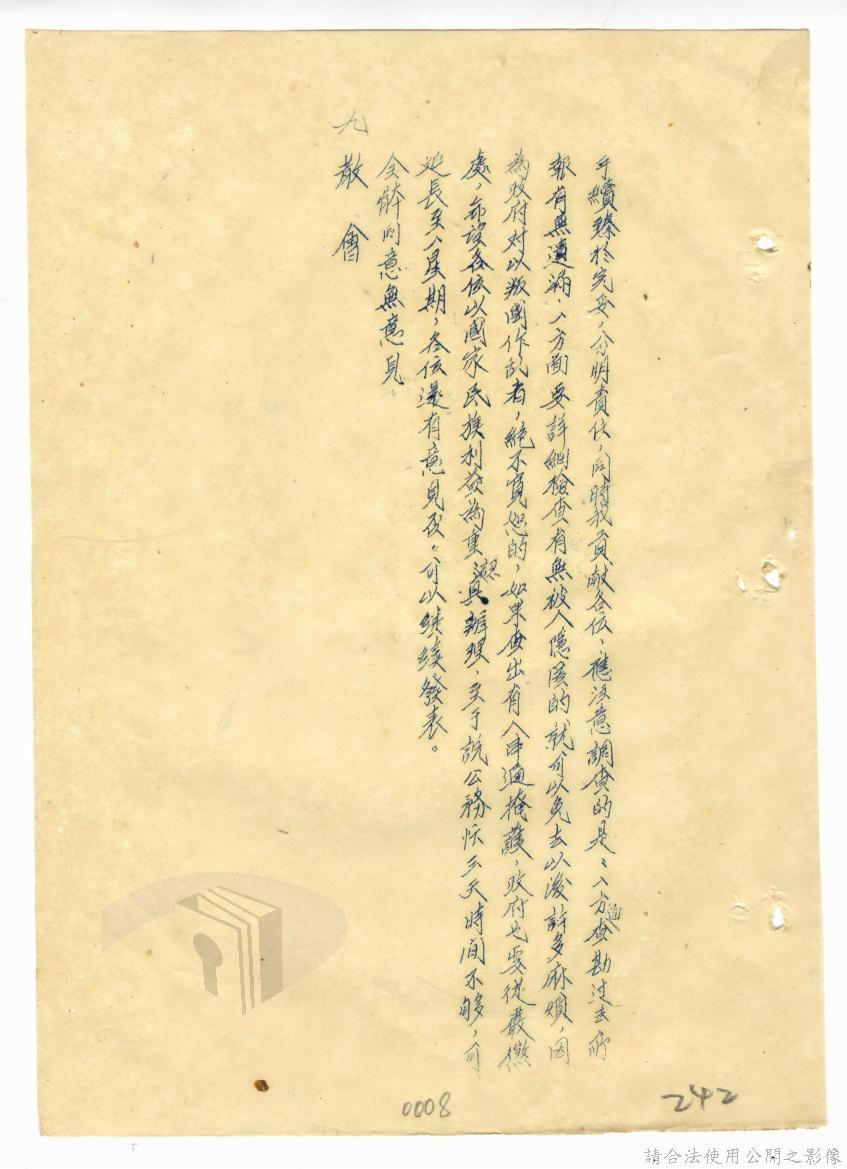 手續臻於完妥，分明責任，同時我貢献各位，應注意調查的是：一方面查勘过去所
報有無遺漏，一方面要詳細檢查有無被人隱匿的就可以免去以後許多麻煩，因
為政府对以叛國作乱者，絕不寬恕的，如果查出有人串通掩護，政府也要從嚴懲
處，希望各位以國家民族利益為重認真辦理，至于說公務忙三天時间不够，可
延長至一星期，各位還有意見否。可以继續發表。
全体同意無意見。
九 散會
0008
242
請合法使用公開之影像